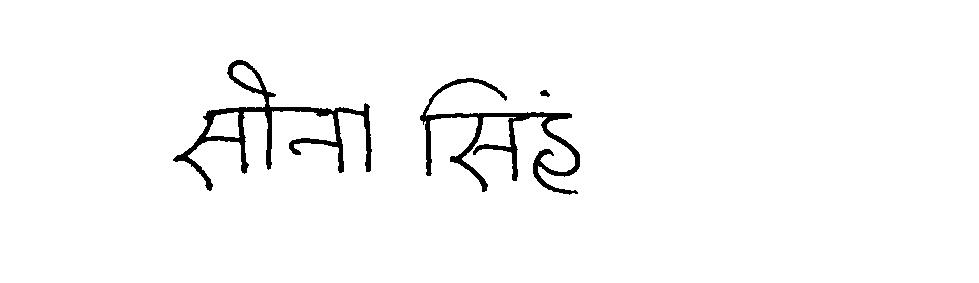 सोना सिहं